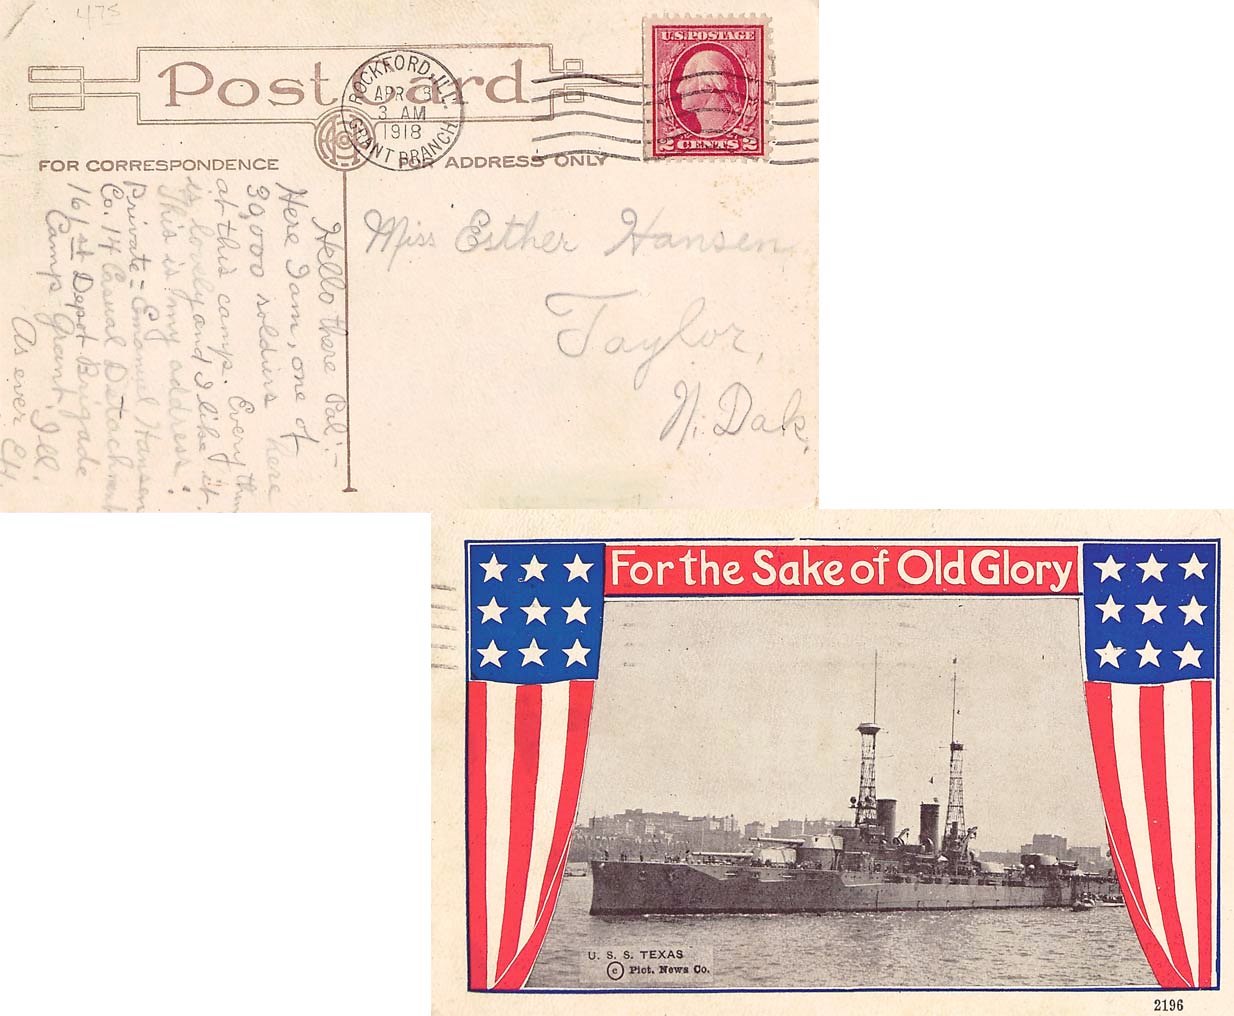 475
Post Card
ROCKFORD, ILL.
APR 3
3 AM
1918
GRANT BRANCH
U.S. POSTAGE
2 CENTS 2
FOR CORRESPONDENCE
FOR ADDRESS ONLY
Hello there Pal:-
Here I am, one of
30,000 soldiers here
at this camp. Every thin
is lovely and I like it.
This is my address:
Private = Emanuel Hansen
Co. 14 Casual Detachment
161st Depot Brigade
Camp Grant, Ill.
As ever EH.
Miss Esther Hansen,
Taylor,
N. Dak.
For the Sake of Old Glory
U. S. S. TEXAS
© Pict. News Co.
2196